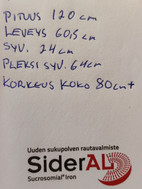 PITUUS 120 cm
LEVEYS 60,5 cm
SYV. 24 cm
PLEKSI SYV. 64 cm
KORKEUS KOKO 80 cm+
Uuden sukupolven rautavalmiste
SiderAL®
Sucrosomial® Iron